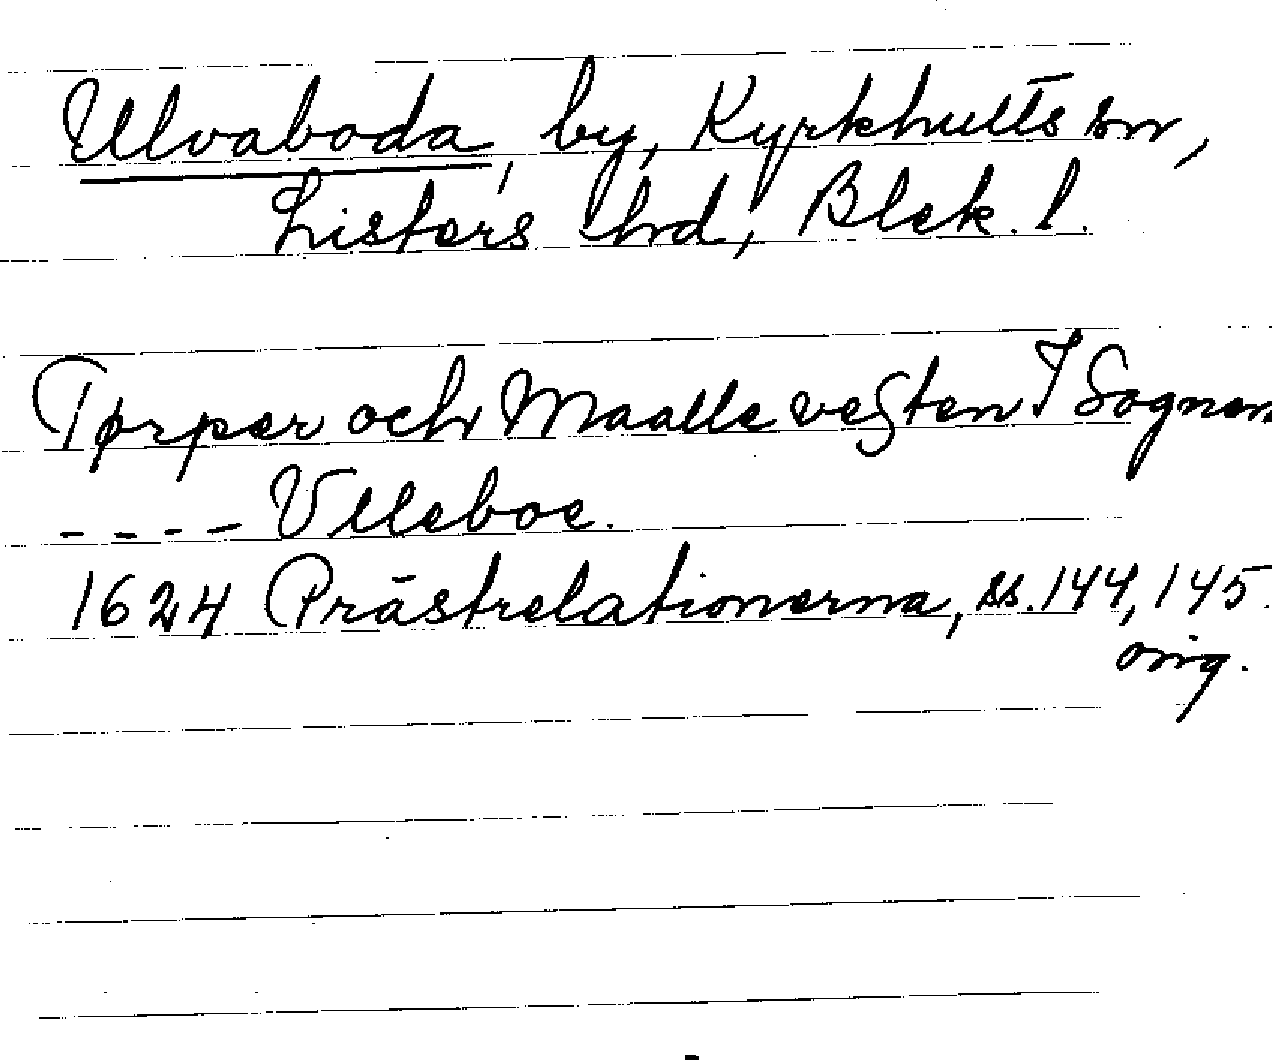 Ulvaboda, by, Kyrkhults sn,
Listers hd, Blek. l.
Tørper och Maalle veſten I Sognen
---- Vlleboe.
1624 Prästrelationerna, ss. 144, 145.
orig.